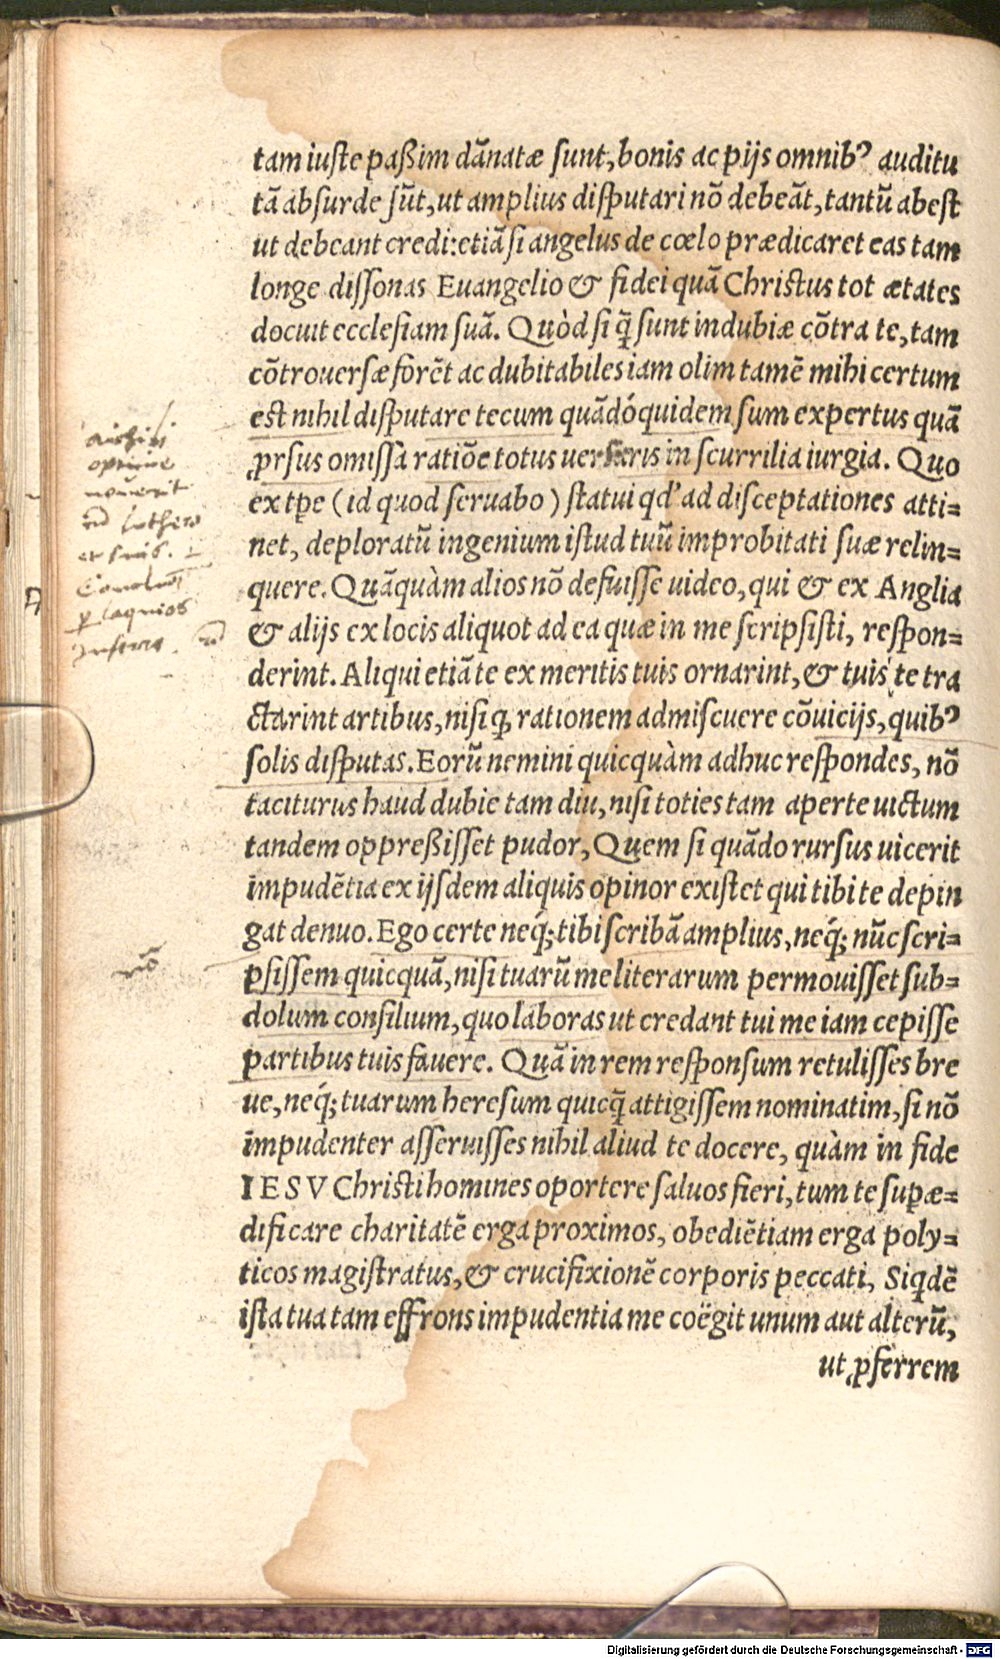 tam iuste paßim dãnatæ sunt, bonis ac pijs omnibꝰ auditu
tã absurde sũt, ut amplius disputari nõ debeãt, tantũ abest
ut debeant credi: etiã si angelus de cœlo prædicaret eas tam
longe dissonas Euangelio & fidei quã Christus tot ætates
docuit ecclesiam suã. Quòd si q̃ sunt in dubiæ cõtra te, tam
cõtrouersæ forẽt ac dubitabiles iam olim tamẽ mihi certum
est nihil disputare tecum quãdóquidem sum expertus quã
ꝓrsus omissa ratiõe totus uersaris in scurrilia iurgia. Quo
ex tꝑe (id quod seruabo) statui qd' ad disceptationes atti=
net, deploratũ ingenium istud tuũ improbitati suæ relin=
quere. Quãquàm alios nõ defuisse uideo, qui & ex Anglia
& alijs ex locis aliquot ad ea quæ in me scripsisti, respon=
derint. Aliqui etiã te ex meritis tuis ornarint, & tuis te tra
ctarint artibus, nisi q̃ rationem admiscuere cõuicijs, quibꝰ
solis disputas. Eorũ nemini quicquàm adhuc respondes, nõ
taciturus haud dubie tam diu, nisi toties tam aperte uictum
tandem oppreßisset pudor, Quem si quãdo rursus uicerit
impudẽtia ex ijsdem aliquis opinor existet qui tibi te depin
gat denuo. Ego certe neq́; tibi scribã amplius, neq́; nũc scri=
psissem quicquã, nisi tuarũ me literarum permouisset sub=
dolum consilium, quo laboras ut credant tui me iam cepisse
partibus tuis fauere. Quã in rem responsum retulisses bre
ue, neq́; tuarum heresum quicq̃ attigissem nominatim, si nõ
impudenter asseruisses nihil aliud te docere, quàm in fide
IESV Christi homines oportere saluos fieri, tum te supæ=
dificare charitatẽ erga proximos, obediẽtiam erga poly=
ticos magistratus, & crucifixionẽ corporis peccati, Siqdẽ
ista tua tam effrons impudentia me coëgit unum aut alterũ,
ut ꝓferrem
optime
cũ luthero
et suis.
nõ
Digitalisierung gefördert durch die Deutsche Forschungsgemeinschaft - DFG